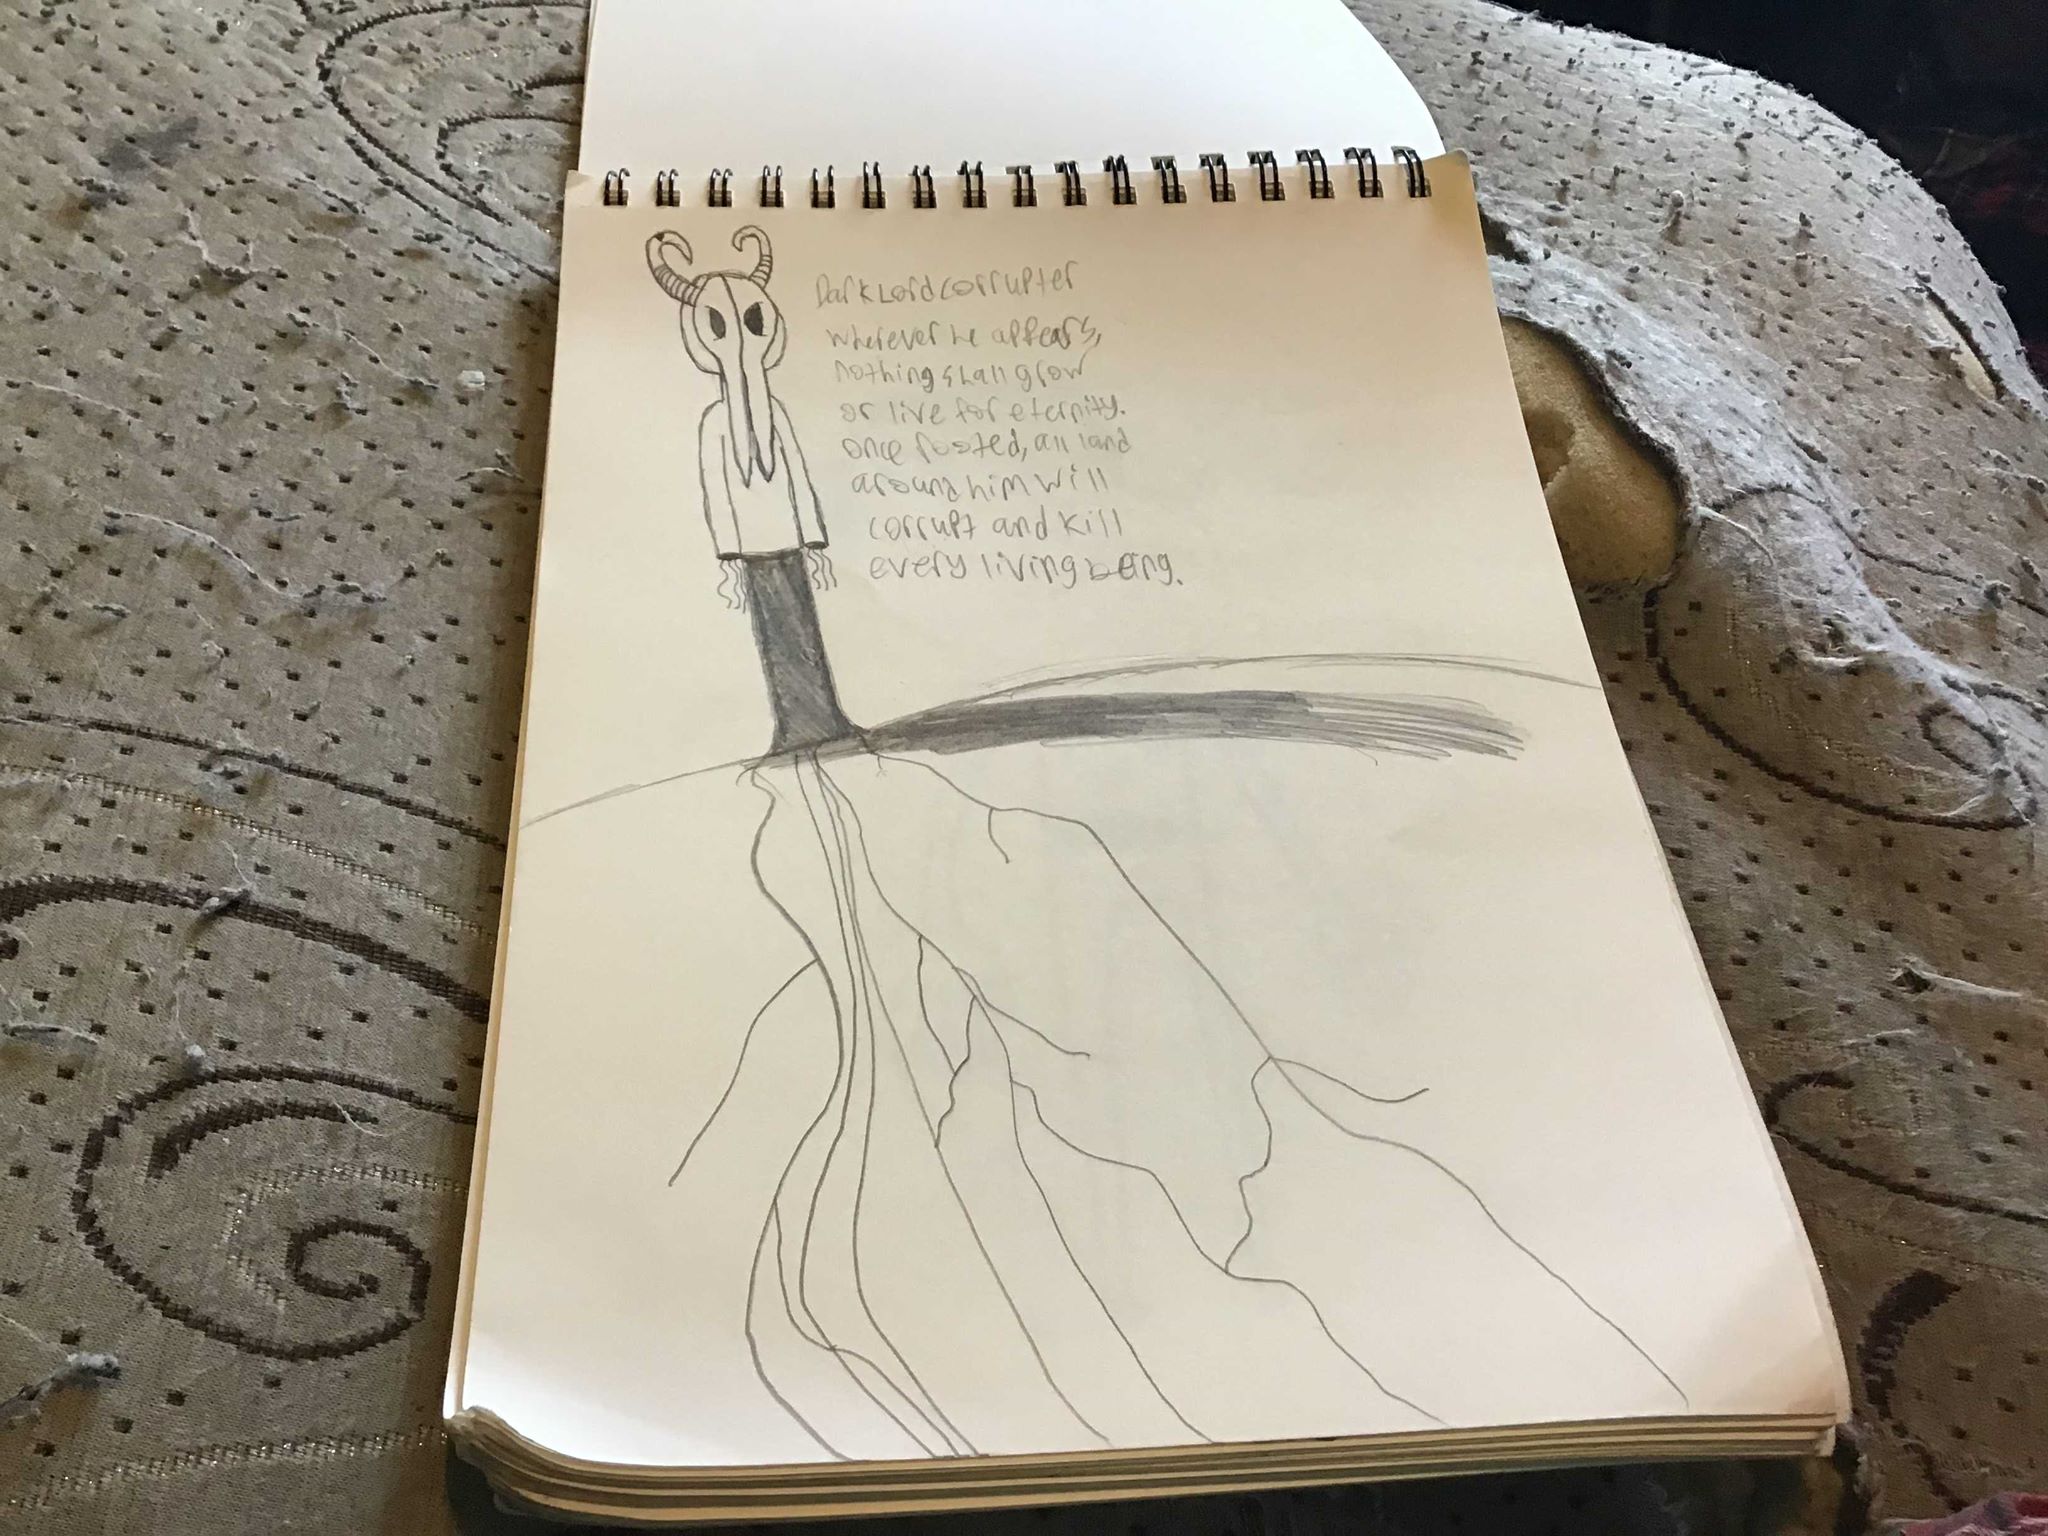 Dark Lord corrupter
wherever he appears,
nothing shall grow
or live for eternity.
once rooted, all land
around him will
corrupt and kill
every living being.